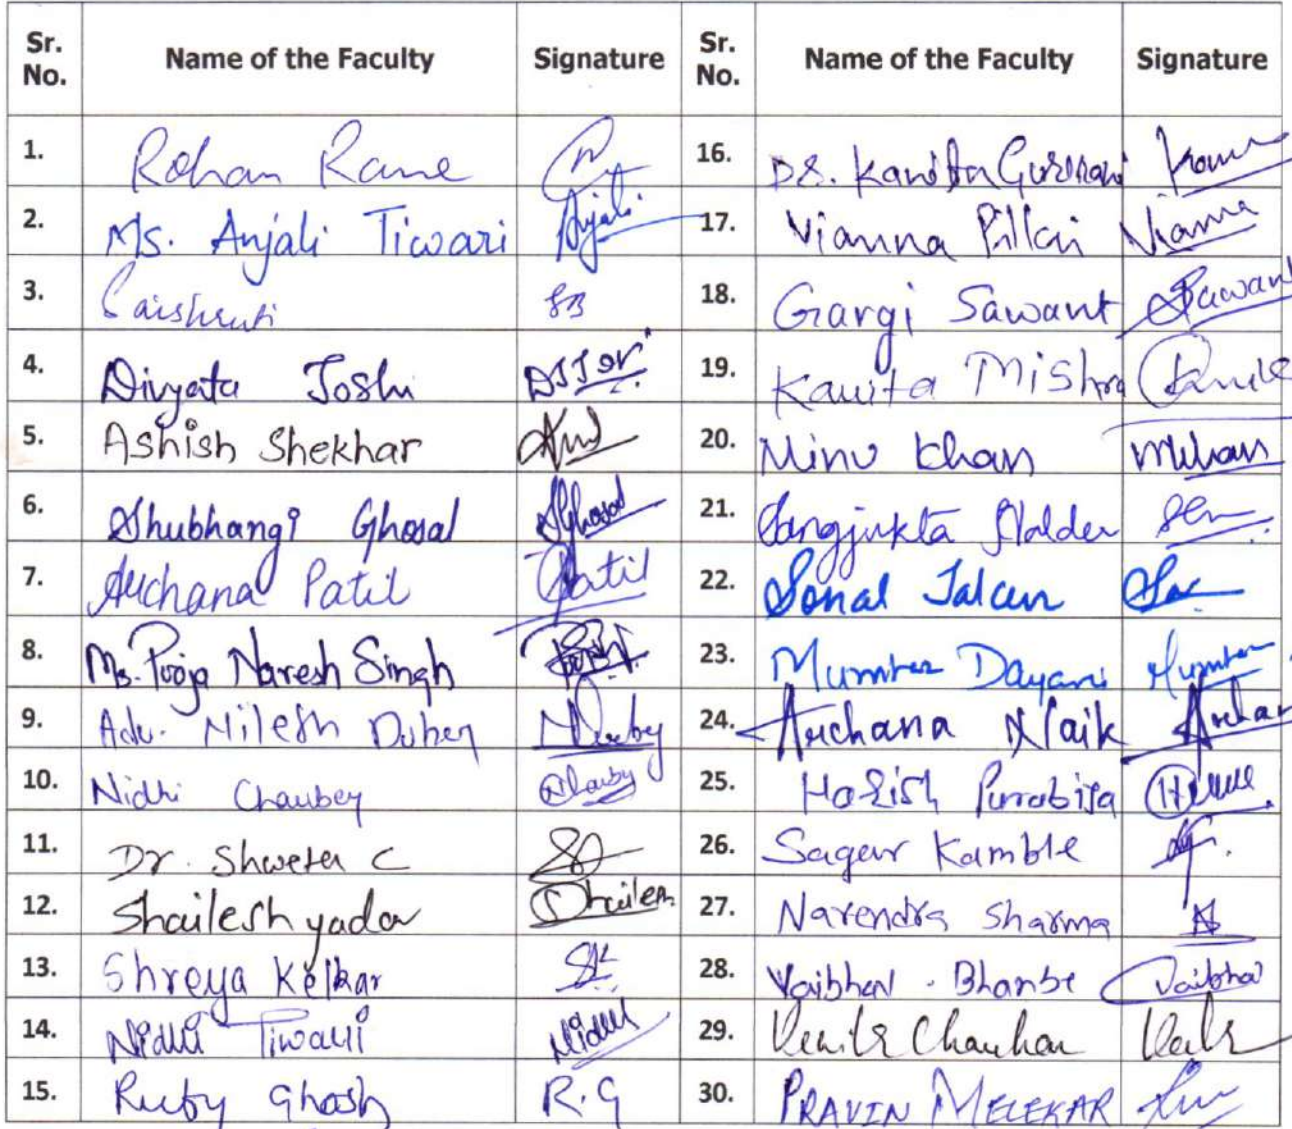 Sr. No. Name of the Faculty Signature Sr. No. Name of the Faculty Signature
1. Rohan Rane 16. Dr. Kavita Gurnani
2. Ms. Anjali Tiwari Anjali 17. Vianna Pillai Vianna
3. Saishruti SB 18. Gargi Sawant Sawant
4. Divyata Joshi 19. Kavita Mishra
5. Ashish Shekhar 20. Minu Khan MKhan
6. Shubhangi Ghosal SGhosal 21. Sangjukta Halder
7. Archana Patil Patil 22. Sonal
8. Ms. Pooja Naresh Singh 23. Mumtaz Dayani Mumtaz
9. Adv. Nilesh Dubey NDubey 24. Archana Naik Archan
10. Nidhi Chaubey 25. Harish Purabiya
11. Dr. Shweta C 26. Sagar Kamble
12. Shailesh yadav Shailesh 27. Narendra Sharma
13. Shreya Kelkar SK 28. Vaibhav . Bhambe Vaibhav
14. Nidhi Tiwari Nidhi 29. Chauhan
15. Ruby Ghosh R.G 30. PRAVIN MELEKAR